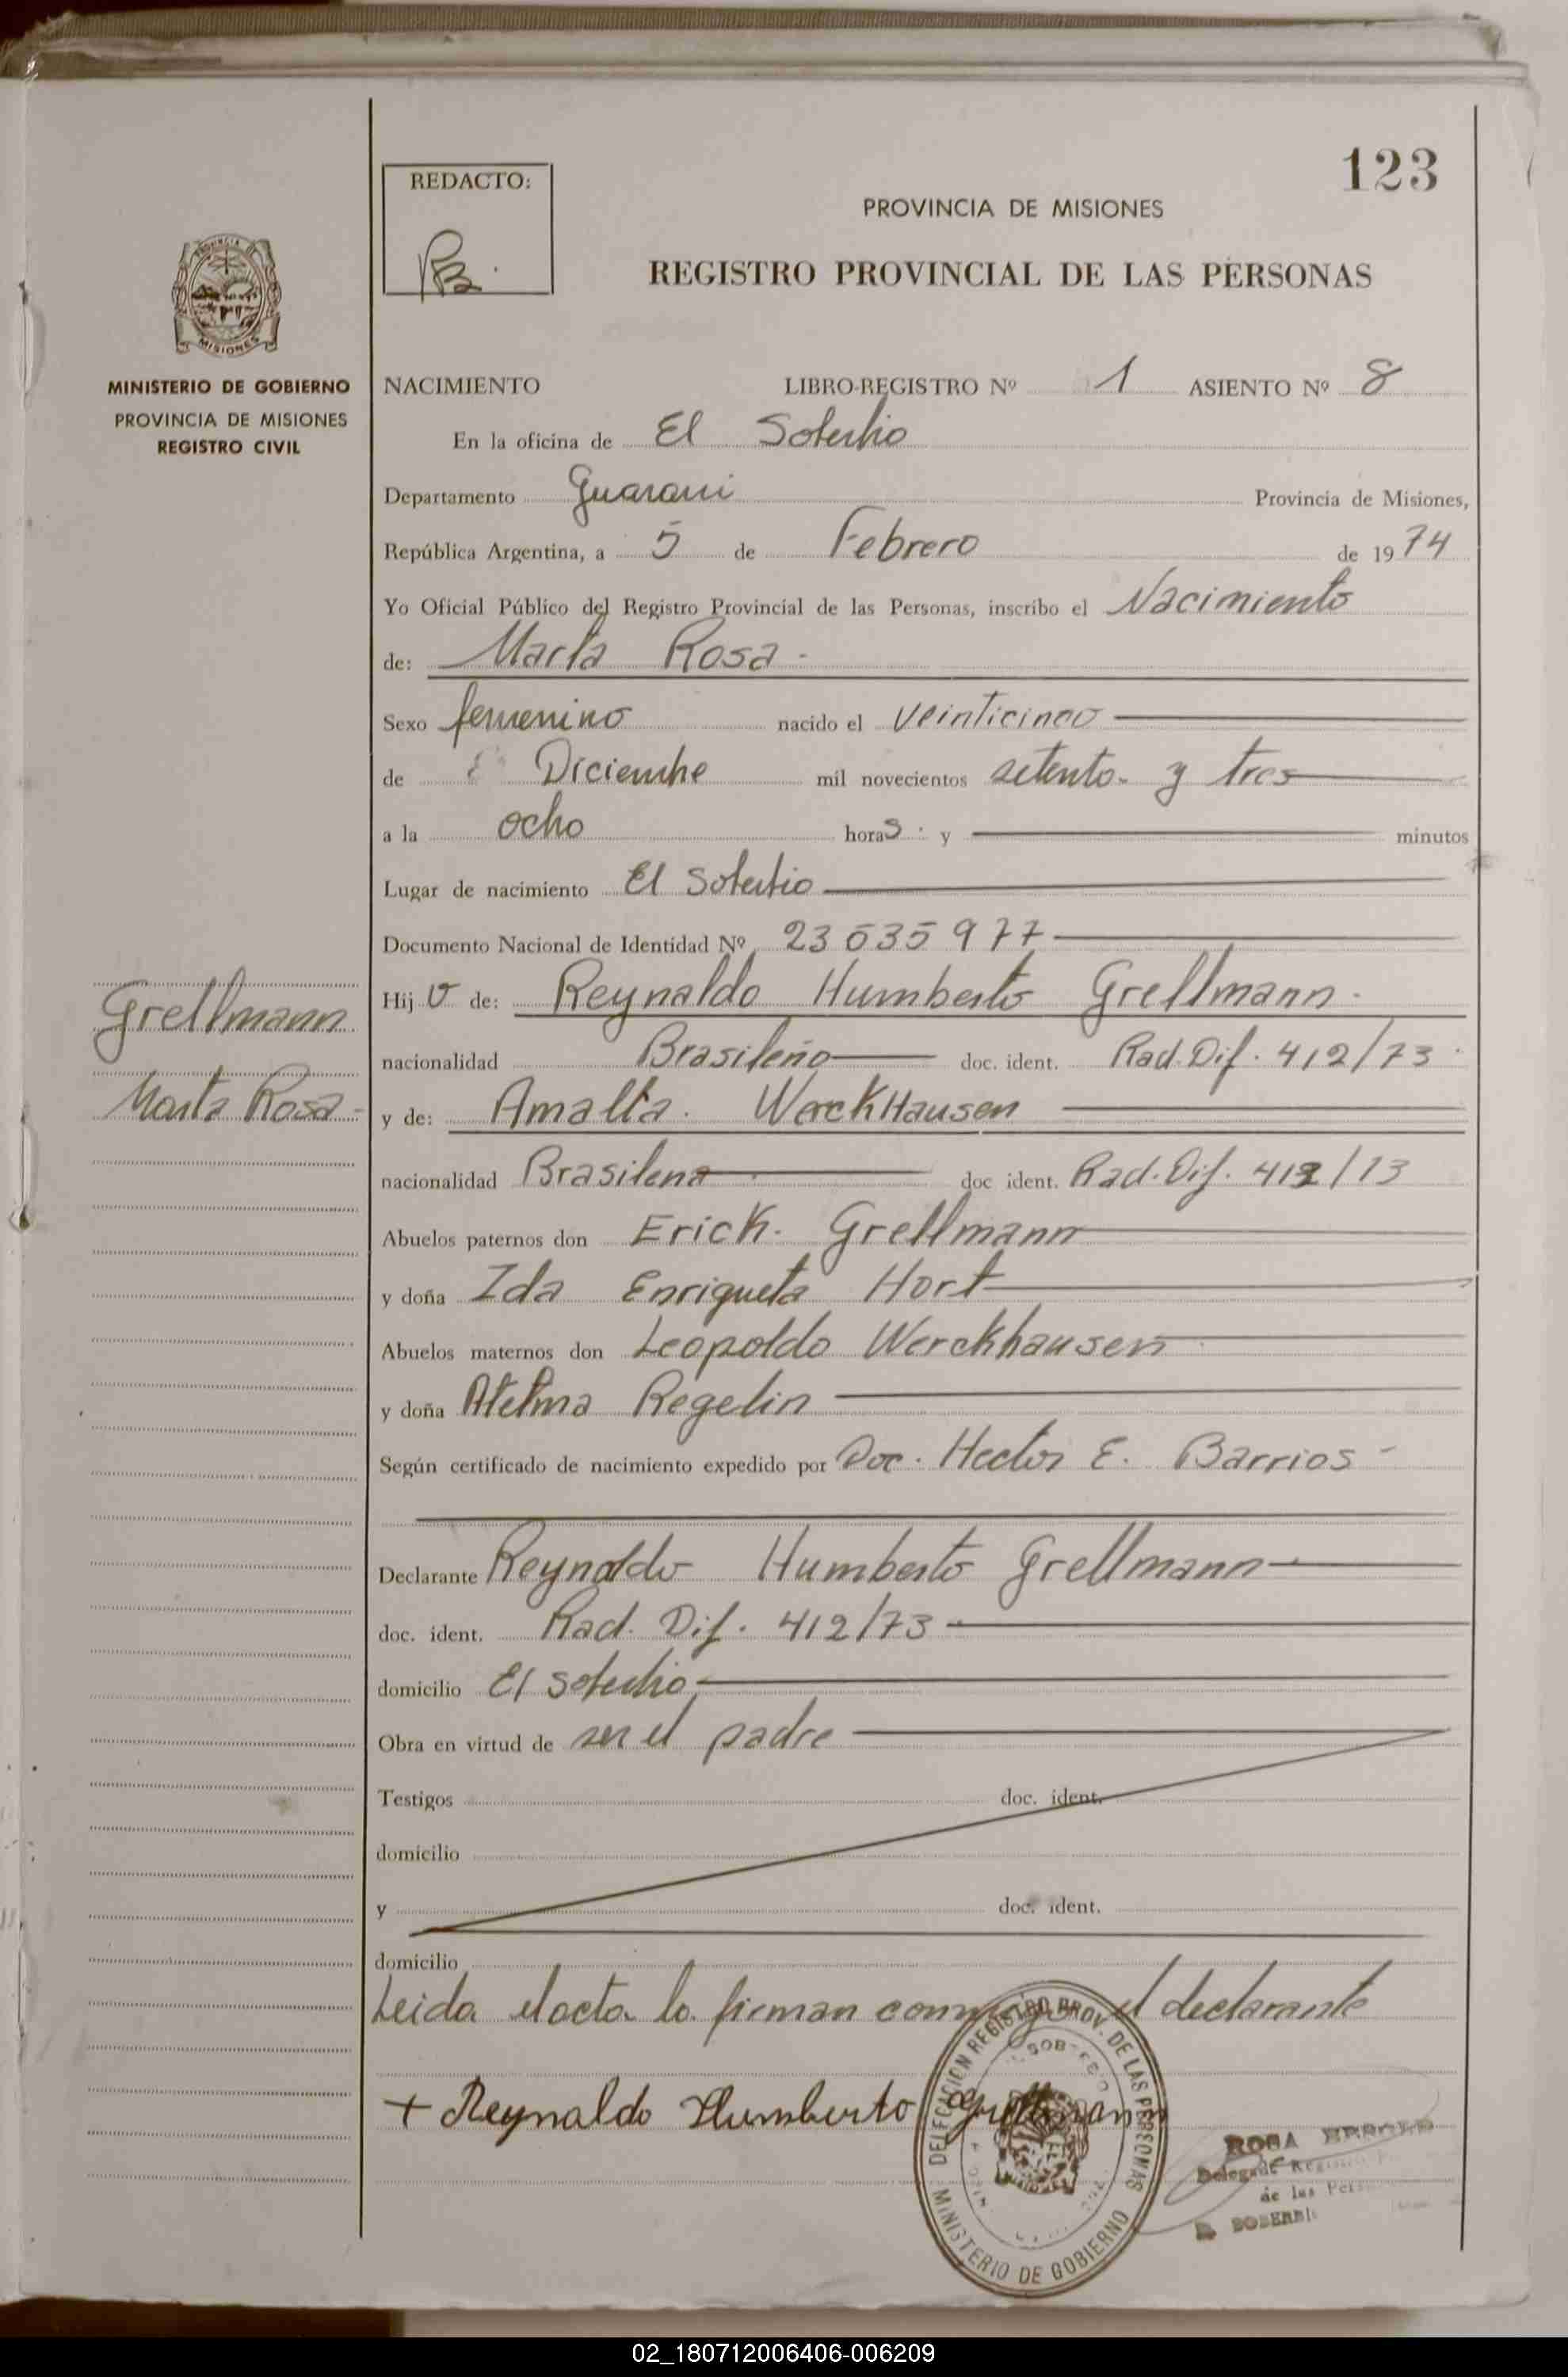 123
REDACTO:
PROVINCIA DE MISIONES
REGISTRO PROVINCIAL DE LAS PERSONAS
MISIONES
MINISTERIO DE GOBIERNO
PROVINCIA DE MISIONES
REGISTRO CIVIL
NACIMIENTO LIBRO-REGISTRO Nº 1 ASIENTO Nº 8
En la oficina de El Soberbio
Departamento Guarani Provincia de Misiones,
República Argentina, a 5 de Febrero de 1974
Yo Oficial Público del Registro Provincial de las Personas, inscribo el Nacimiento
de: Marta Rosa
Sexo femenino nacido el veinticinco
de Diciembre mil novecientos setenta y tres
a la ocho horas y minutos
Lugar de nacimiento El Soberbio
Documento Nacional de Identidad Nº 23 535 977
Grellmann
Marta Rosa
Hij de: Reynaldo Humberto Grellmann
nacionalidad Brasileño doc. ident. Rad. Dif. 412/73
y de: Amalia Werckhausen
nacionalidad Brasilena doc ident. Rad. Dif. 412/73
Abuelos paternos don Erick Grellmann
y doña Ida Enriqueta Hort
Abuelos maternos don Leopoldo Werckhausen
y doña Regelin
Según certificado de nacimiento expedido por Doc. Hector E. Barrios
Declarante Reynaldo Humberto Grellmann
doc. ident. Rad. Dif. 412/73
domicilio El Soberbio
Obra en virtud de ser el padre
Testigos doc. ident.
domicilio
y doc. ident.
domicilio
Leida el acta la firman conmigo el declarante
+ Reynaldo Humberto Grellmann
DELEGACION REGISTRO PROV. DE LAS PERSONAS
MINISTERIO DE GOBIERNO
ROSA
de las
02_180712006406-006209